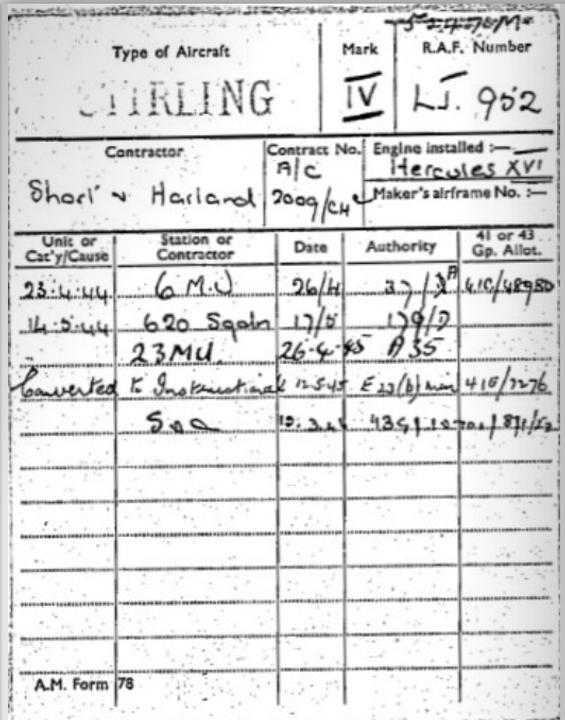 5247OM
Type of Aircraft Mark R.A.F. Number
STIRLING IV LJ. 952
Contractor Contract No. Engine installed :—
A/C Hercules XVI
Short & Harland 2009/CH Maker's airframe No. :—
Unit or Cat'y/Cause Station or Contractor Date Authority 41 or 43 Gp. Allot.
23.4.44 6 M.U 26/4 37/
14.5.44 620 Sqdn 17/5 179/D
23 MU. 26.4.45 A35
Converted to Instructional 12.5.45 E23(b) 410/7276
Soc
A.M. Form 78